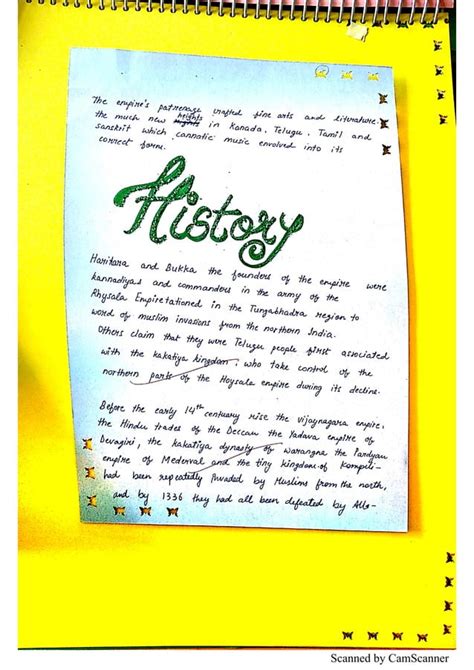 The empire's patronage crafted fine arts and literature
the much new heights in Kanada, Telugu, Tamil and
sanskrit which cannatic music envolved into its
correct form.
History
Harihara and Bukka the founders of the empire were
kannadiyas and commanders in the army of the
Rhysala Empire tationed in the Tungabhadra region to
word of muslim invasions from the northern India.
Others claim that they were Telugu people first associated
with the kakatiya kingdom, who take control of the
northern parts of the Hoysala empire during its decline.
Before the early 14th centuary rise the vijaynagara empire,
the Hindu trades of the Deccan the Yadava empire of
Devagiri, the kakatiya dynasty of warangna the Pandyan
empire of Mederval and the tiny kingdom of Kompili-
had been repeatedly invaded by Muslims from the north,
and by 1336 they had all been defeated by Alla-
Scanned by CamScanner